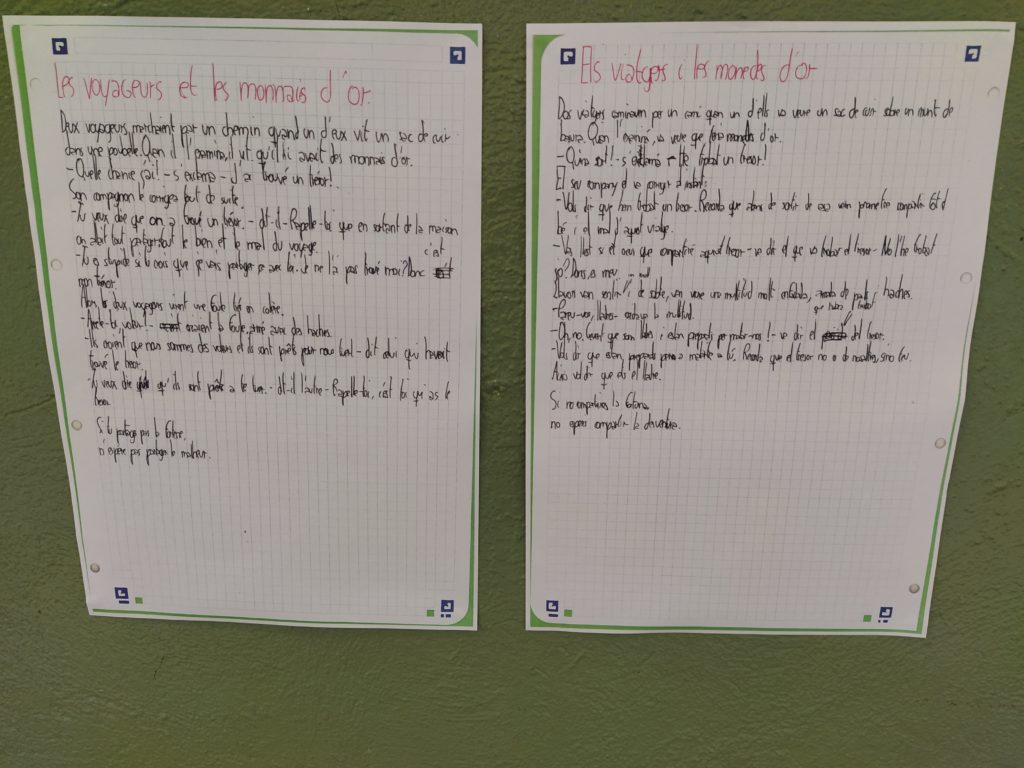 Les voyageurs et les monnais d'or.
Deux voyageurs marchaient par un chemin quand un d'eux vit un sac de cuir
dans une poubelle. Quen il l'examina, il vit qu'il hi avait des monnais d'or.
-Quelle chance j'ai! -s'exclama- J'ai trouvé un trésor!
Son compagnon le corrigea tout de suite.
-Tu veux dire que on a trouvé un trésor. -dit-il- Rappelle-toi que en sortant de la maison
on allait tout partager: tout le bien et le mal du voyage.
-Tu es stupide si tu crois que je vais partager ça avec toi. Je ne l'ai pas trouvé moi? Donc c'est
mon trésor.
Alors, les deux voyageurs virent une foule très en colère.
-Arrête-toi, voleur! - crièrent la foule, armé avec des haches.
-Ils croient que nous sommes des voleurs et ils sont prêts pour nous tuer! - dit celui qui havait
trouvé le trésor.
-Tu veux dire qu'ils sont prêts a te tuer. -dit-il l'autre- Rapelle-toi, c'est toi qui as le
trésor.
Si tu partage pas la fortune,
n'espère pas partager le malheur.
Els viatgers i les monedes d'or
Dos viatgers caminaven per un camí quan un d'ells va veure un sac de cuir sobre un munt de
Quan l'examinà, va veure que monedes d'or.
-Quina sort! -s'exclamà -He trobat un tresor!
El seu company el va corregir a l'instant:
-Vols dir que hem trobat un tresor. Recorda que abans de sortir de casa vam prometre compartir tot el
bé i el mal d'aquest viatge.
-Vas llest si et creus que compartiré aquest tresor -va dir el que va trobar el tresor- No l'he trobat
jo? Doncs, és meu.
Llavors van sentir i, de sobte, van veure una multitud molt enfadada, armada de pals i haches.
-Pareu-vos, lladres- la multitud.
-Oh, no, creuen que som lladres i estan preparats per matar-nos! -va dir el que havia trobat el tresor.
-Vols dir que estan preparats per a matar-te a tu. Recorda que el tresor no és de nosaltres, sinó teu.
Això vol dir que ets el lladre.
Si no comparteixes la fortuna,
no esperes compartir la desventura.